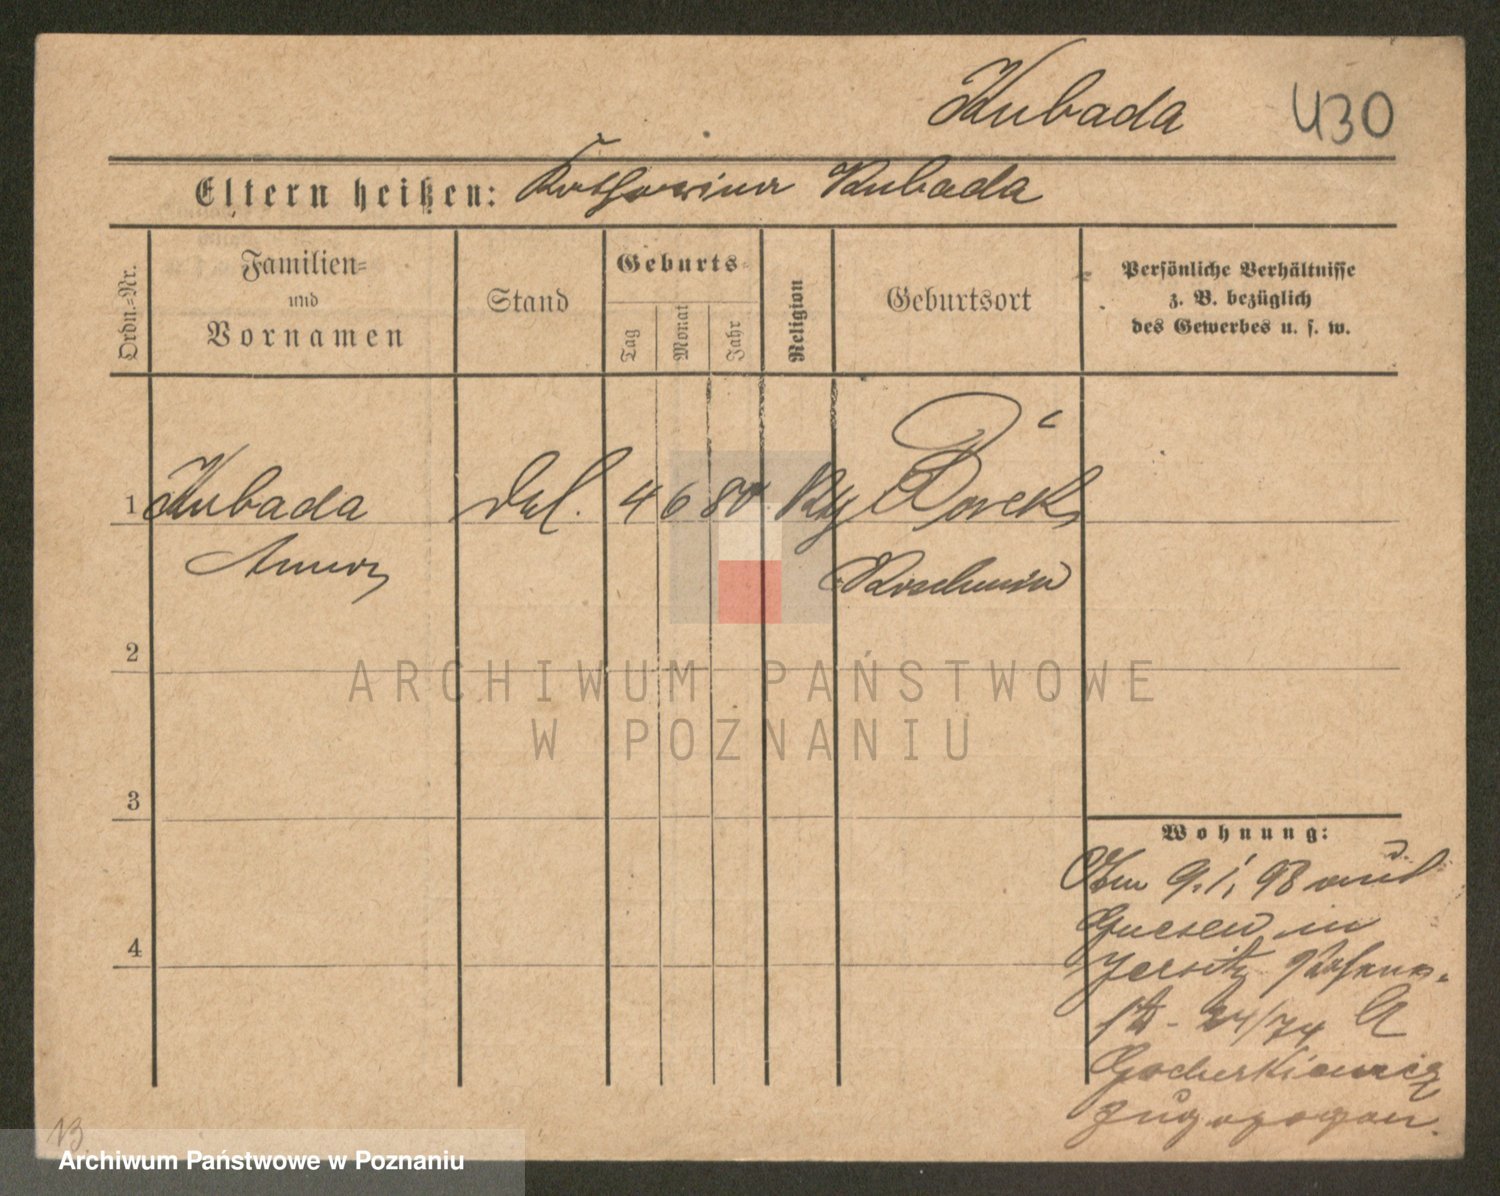 Kubada 430
Eltern heißen: Katharina Kubada
Ordn.-Nr.
Familien-
und
Vornamen
Stand
Geburts-
Tag
Monat
Jahr
Religion
Geburtsort
Persönliche Verhältnisse
z. B. bezüglich
des Gewerbes u. s. w.
1 Kubada 4 6 80 Borek
Anna Koschmin
2
3
4
Wohnung:
Am 9.1.98 aus
Gnesen in
Jersitz
24/74 A
zugezogen.
13
ARCHIWUM PAŃSTWOWE
W POZNANIU
Archiwum Państwowe w Poznaniu